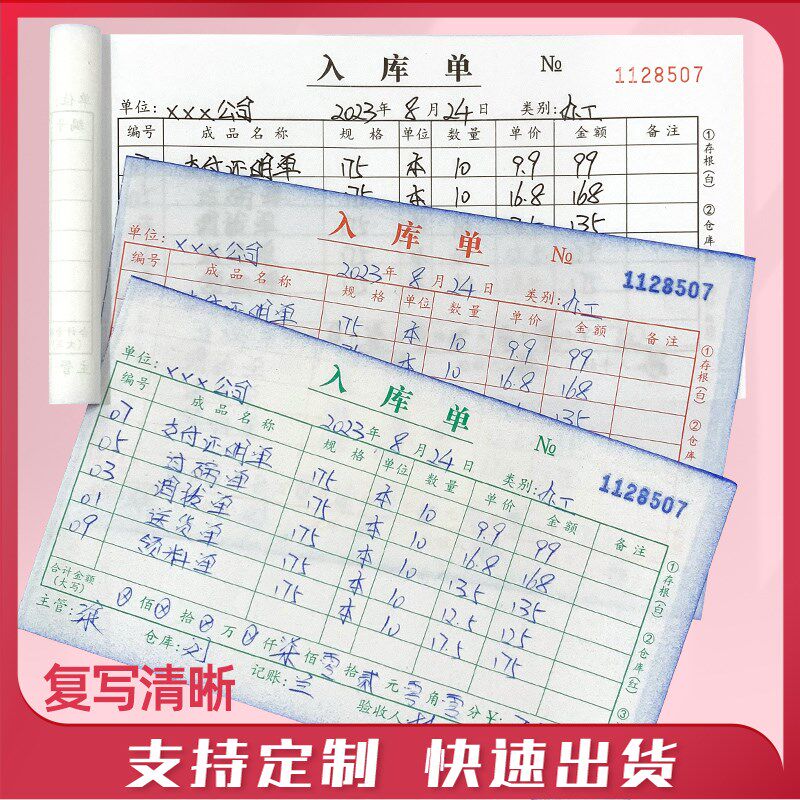 入库单 № 1128507
单位: ×××公司 2023年 8月 24日 类别: 办工
编号 成品名称 规格 单位 数量 单价 金额 备注
支付证明单 175 本 10 9.9 99
175 本 10 16.8 168
135
①存根(白) ②仓库
入库单 № 1128507
单位: ×××公司 2023年 8月 24日 类别: 办工
编号 成品名称 规格 单位 数量 单价 金额 备注
支付证明单 175 本 10 9.9 99
本 10 16.8 168
135
①存根(白)
入库单 № 1128507
单位: ×××公司 2023年 8月 24日 类别: 办工
编号 成品名称 规格 单位 数量 单价 金额 备注
07 支付证明单 175 本 10 9.9 99
05 175 本 10 16.8 168
03 175 本 10 13.5 135
01 送货单 175 本 10 12.5 125
09 领料单 175 本 10 17.5 175
合计金额(大写) 佰 拾 万 仟 柒佰 零拾 贰元 零角 零分 ¥:
主管: 仓库: 记账: 兰 验收人:
①存根(白) ②仓库(红) ③
复写清晰
支持定制 快速出货